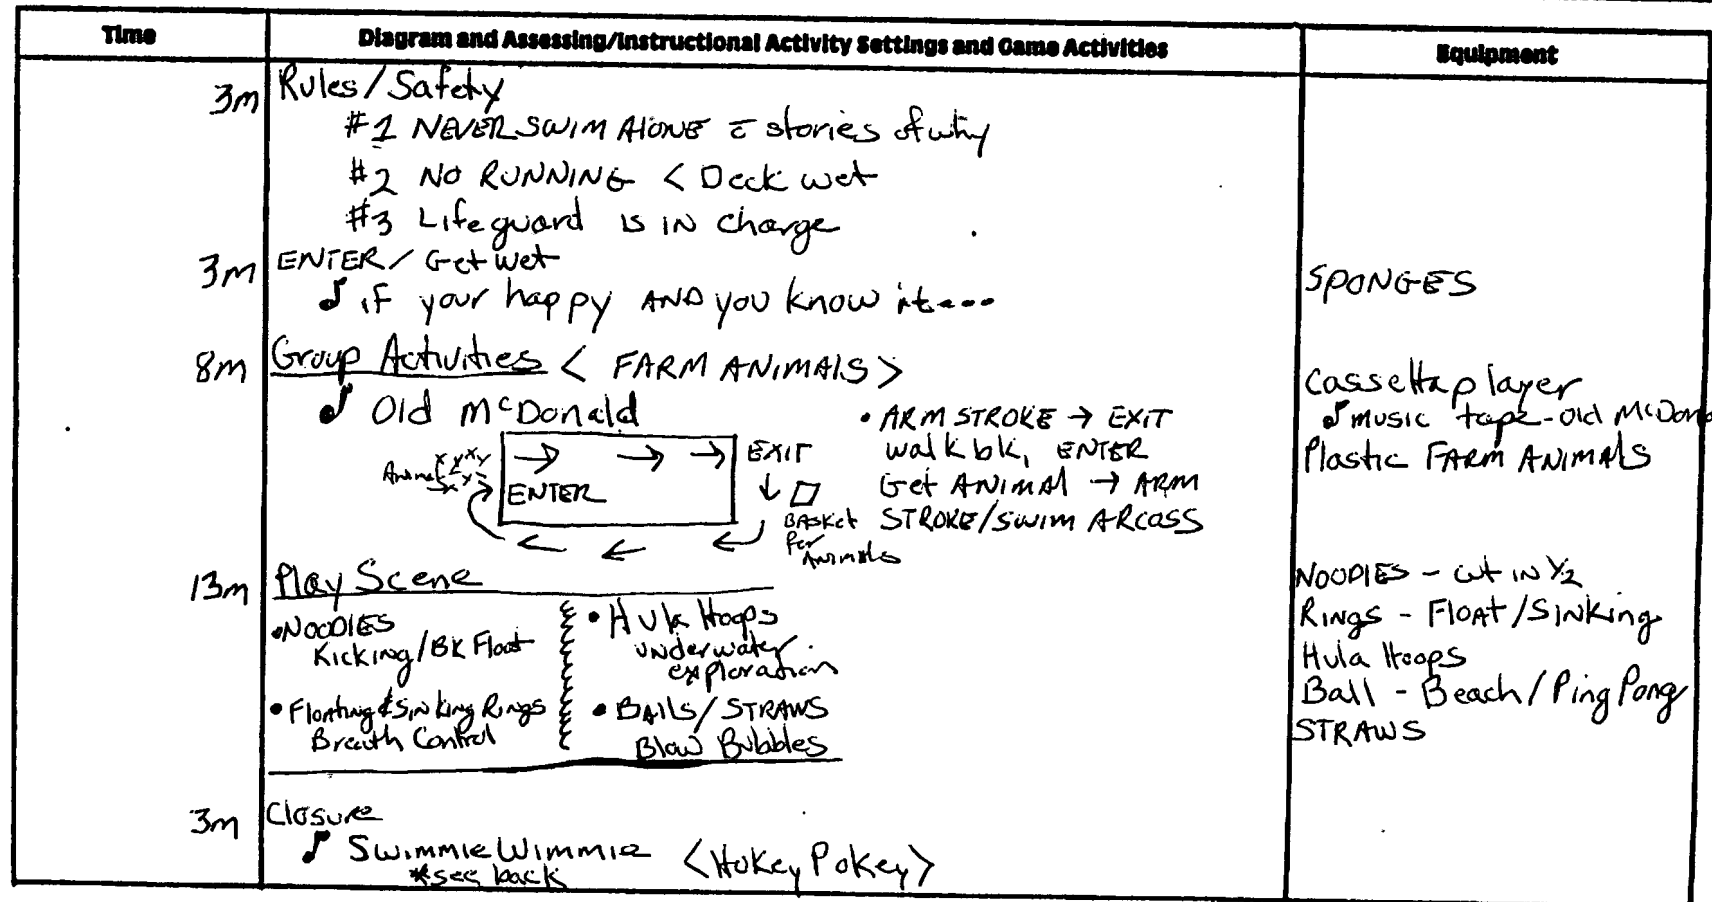 Time
Diagram and Assessing/Instructional Activity Settings and Game Activities
Equipment
3m
Rules/Safety
#1 NEVER SWIM AlONE c̄ stories of why
#2 NO RUNNING < Deck wet
#3 Lifeguard is IN charge
3m
ENTER/Get wet
♪ if your happy AND you know it...
SPONGES
8m
Group Activities < FARM ANIMAlS >
♪ Old McDonald
• ARM STROKE → EXIT
walk bk, ENTER
Get ANIMAl → ARM
STROKE/SWIM ARCOSS
EXIT
ENTER
BASKet
for
ANIMAls
Cassetta player
♪ music tape-old McDona
Plastic FARM ANIMAlS
13m
Play Scene
• NOODlES
Kicking/BK Float
• Floating & Sinking Rings
Breath Control
• Hula Hoops
underwater
exploration
• BAllS/STRAWS
Blow Bubbles
NOODlES - cut IN 1/2
Rings - Float/Sinking
Hula Hoops
Ball - Beach/Ping Pong
STRAWS
3m
Closure
♪ Swimmie Wimmie <Hokey Pokey>
*see back